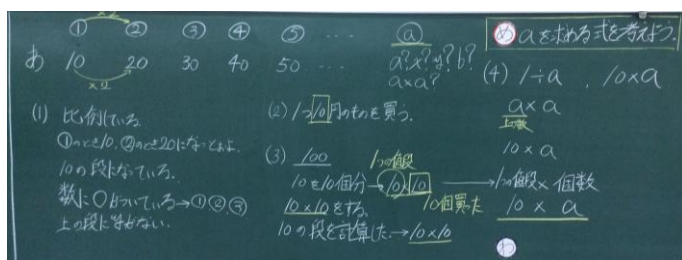 ×2
① ② ③ ④ ⑤ …. a
あ 10 20 30 40 50 ….
×2
a? x? y? b?
a×a?
め aを求める式を考えよう。
(1) 比例している
①のとき10、②のとき20になっとるよ。
10の段になっている。
数に〇がついている→①②③
上の段に字がない。
(2) 1つ10円のものを買う。
(3) 100
1つの値段
10を10個分→10×10
10×10をする。
10個買った
10の段を計算した。→10×10
(4) 1÷a 、 10×a
a×a
上の数
10×a
→1つの値段×個数
10×a
わ